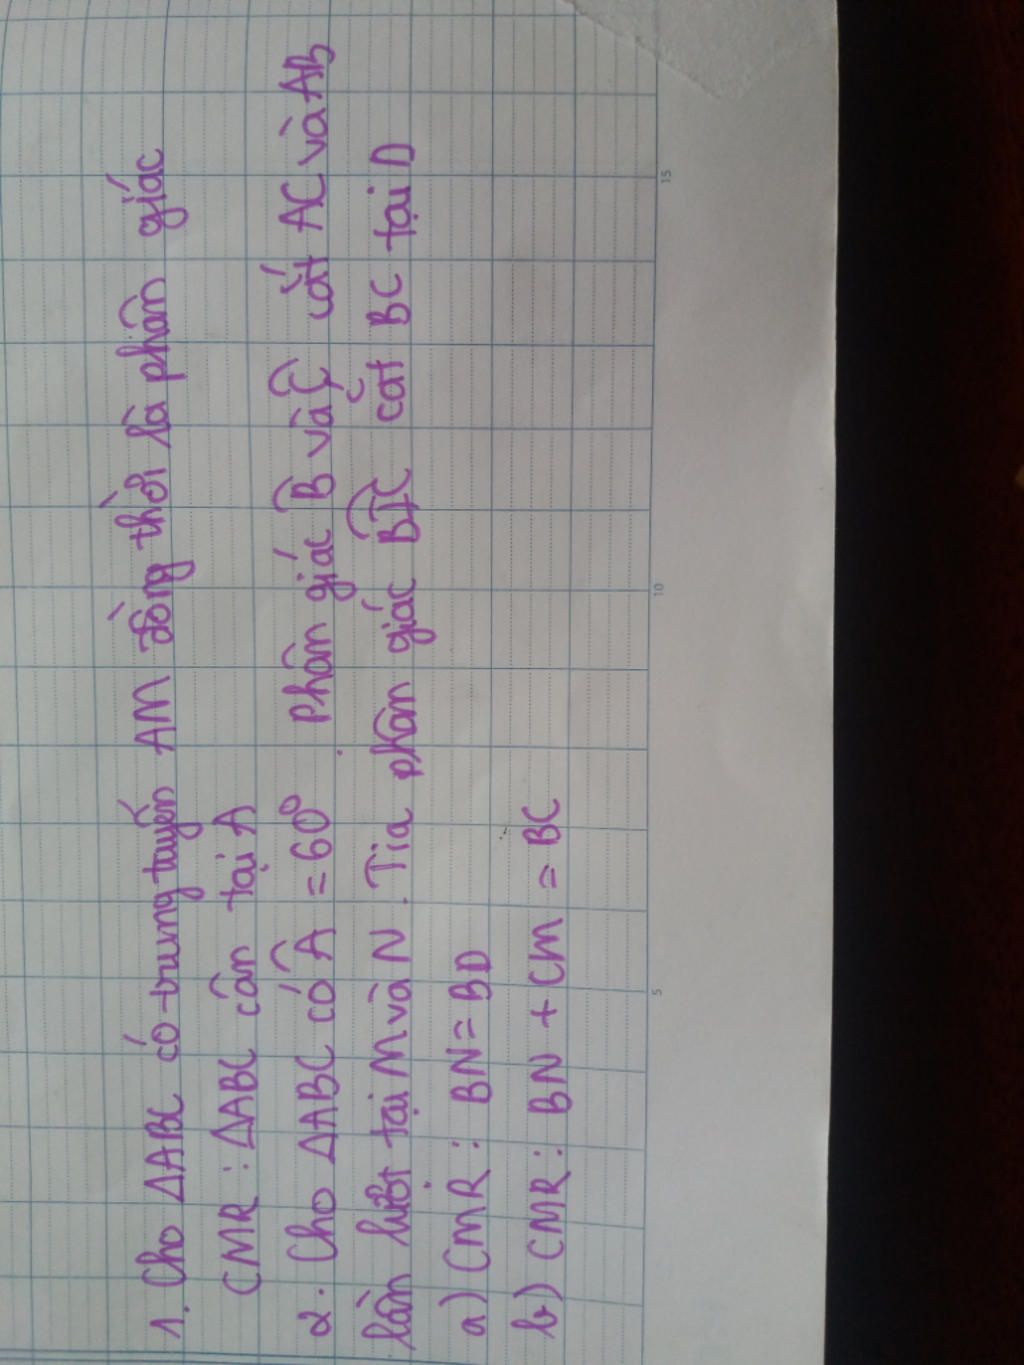 1. Cho ΔABC có trung tuyến AM đồng thời là phân giác
CMR : ΔABC cân tại A
2. Cho ΔABC có Â = 60° . Phân giác B̂ và Ĉ cắt AC và AB
lần lượt tại M và N . Tia phân giác BIC cắt BC tại D
a) CMR : BN = BD
b) CMR : BN + CM = BC
5
10
15